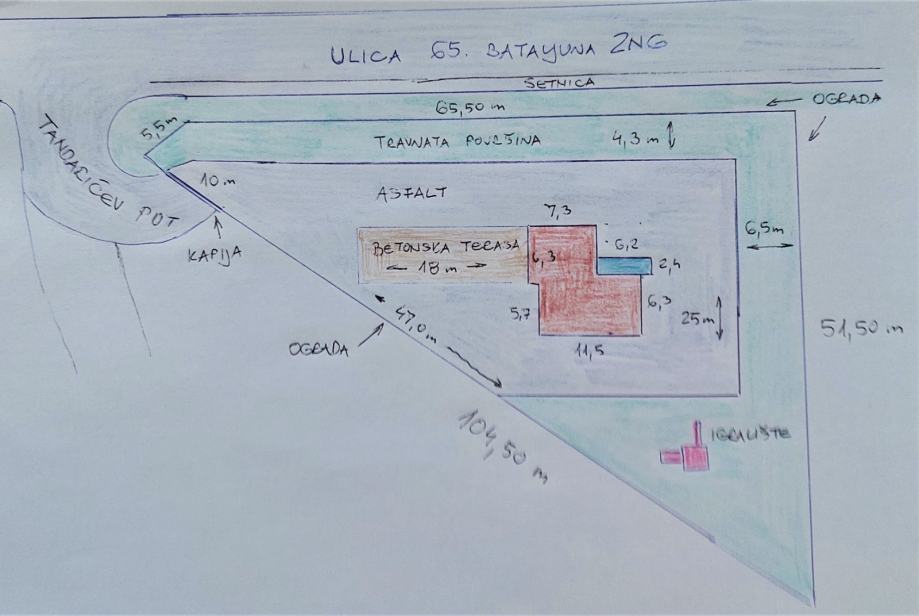 ULICA 65. BATAYUNA ZNG
ŠETNICA
65,50 m
OGRADA
TANDARIĆEV POT
5,5m
TRAVNATA POVRŠINA
4,3 m
10 m
ASFALT
KAPIJA
7,3
BETONSKA TERASA
18 m
6,3
6,2
2,4
6,5m
5,7
6,3
25m
11,5
47,0 m
OGRADA
51,50 m
104,50 m
IGRALIŠTE